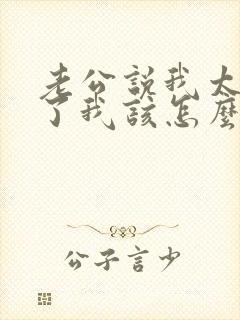 老公說我太
了我該怎麼
公子言少